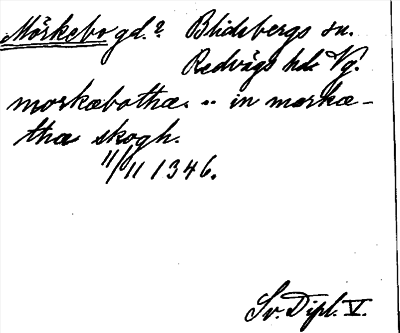 Mörkebo gd.? Blidsbergs sn.
Redvägs hd. Vg.
morkæbothæ .. in mærkæ-
thæ skogh.
11/11 1346.
Sv. Dipl. V.